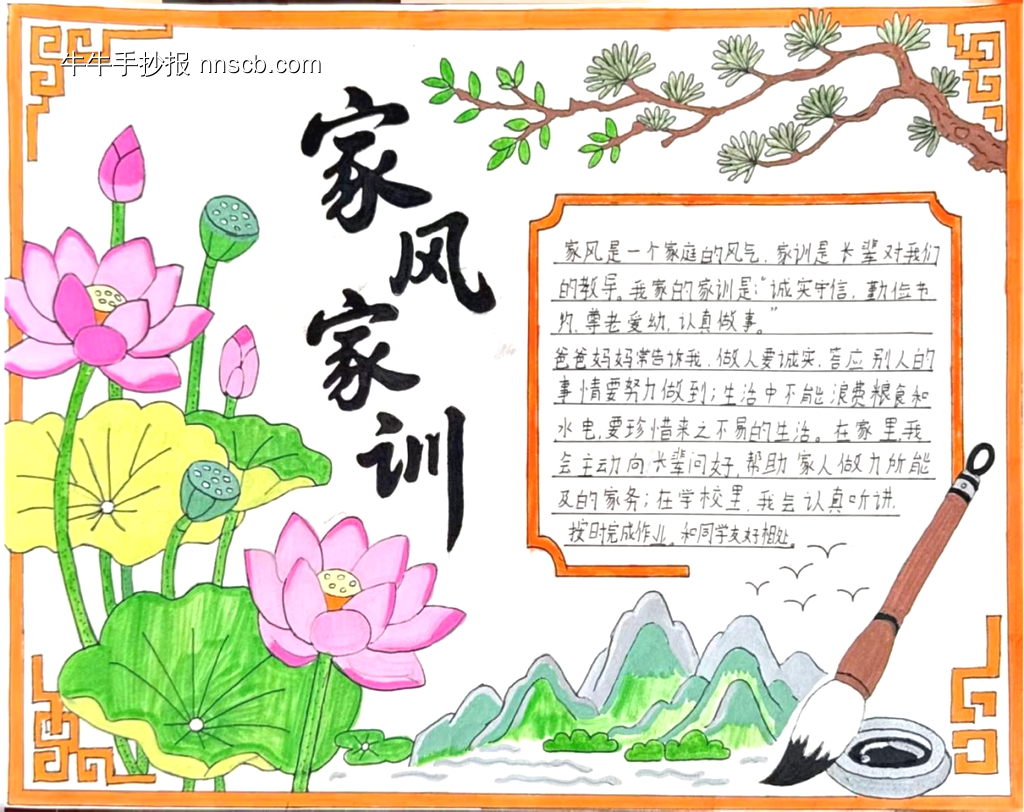 牛牛手抄报 nnscb.com
家风家训
家风是一个家庭的风气，家训是长辈对我们
的教导。我家的家训是：“诚实守信，勤俭节
约，尊老爱幼，认真做事。”
爸爸妈妈常告诉我，做人要诚实，答应别人的
事情要努力做到；生活中不能浪费粮食和
水电，要珍惜来之不易的生活。在家里，我
会主动向长辈问好，帮助家人做力所能
及的家务；在学校里，我会认真听讲，
按时完成作业，和同学友好相处。